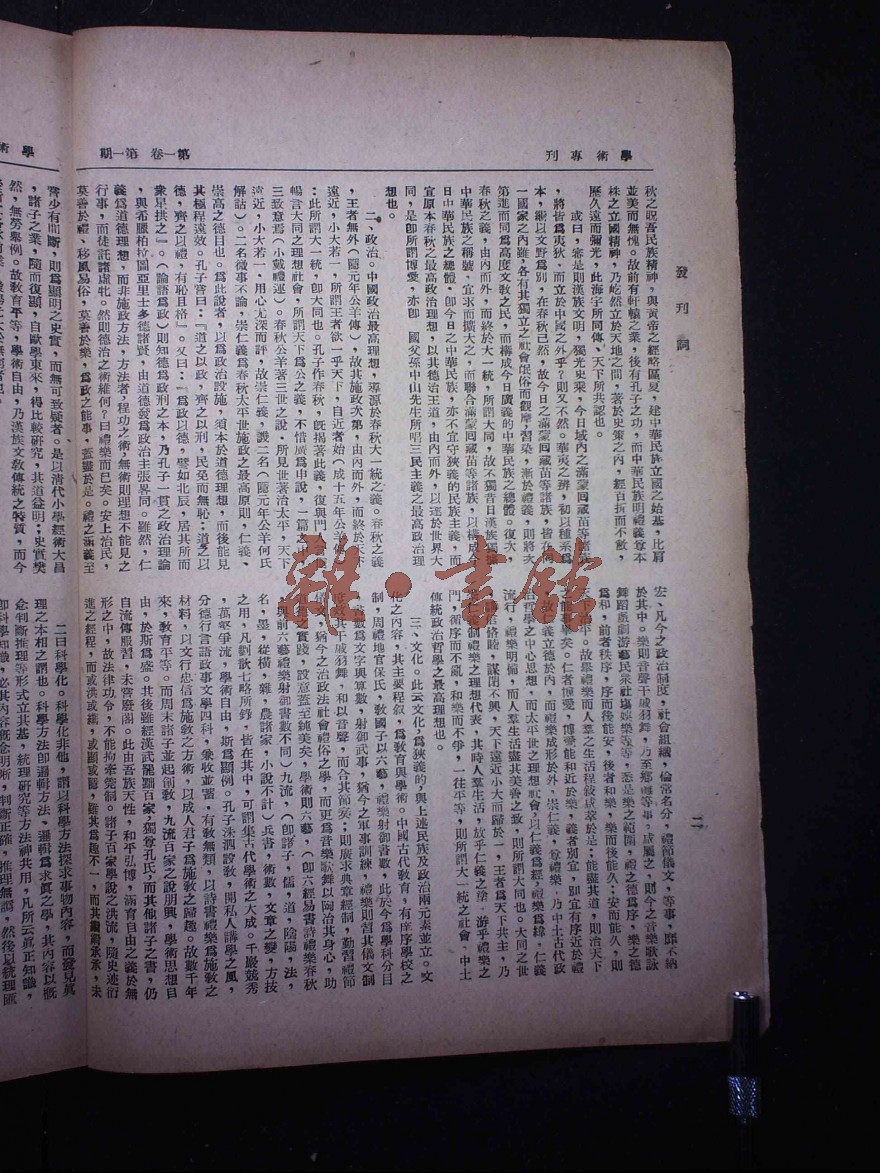 學術專刊
第一卷 第一期
發刊詞
二
秋之呪吾民族精神，與黃帝之經略區夏，建中華民族立國之始基，比肩
並美而無愧。故前有軒轅之業，後有孔子之功，而中華民族明禮義尊本
株之立國精神，乃屹然立於天地之間，著於史策之內，經百折而不敝，
歷久遠而彌光，此海宇所同傳，天下所共認也。
或曰，審是則漢族文明，獨光史乘，今日域內之滿蒙回藏苗等族
，將皆爲夷狄，而立於中國之外乎？則又不然。華夷之辨，初以種系爲
本，繼以文野爲別，在春秋已然，故今日之滿蒙回藏苗等諸族，皆在同
一國家之內，雖各有其獨立之社會氓俗，而觀摩，習染，漸於禮義，則將次
第進而同爲高度文敎之民，而構成今日廣義的中華民族之總體。復次，
春秋之義，由內而外，而終於大一統，所謂大同，故不獨昔日漢族獨擅
中華民族之稱號，宜求而擴大之，而聯合滿蒙回藏苗等諸族，以構成今
日中華民族之總體，卽今日之中華民族，亦不宜守狹義的民族主義，而
宜原本春秋之最高政治理想，以其德治王道，由內而外，以逹於世界大
同，是卽所謂博愛，亦卽　國父孫中山先生所唱三民主義之最高政治理
想也。
二、政治。中國政治最高理想，導源於春秋大一統之義。春秋之義
，王者無外（隱元年公羊傳），故其施政次第，由內而外，而終於天下
遠近，小大若一，所謂王者欲一乎天下，自近者始（成十五年公羊傳）
：此所謂大一統，卽大同也。孔子作春秋，旣揭著此義，復與門人
暢言大同之理想社會，所謂天下爲公之義，不惜廣爲申說，一篇之中
三致意焉（小戴禮運）。春秋公羊著三世之說，所見世著治太平，天下
遠近，小大若一，用心尤深而詳，故崇仁義，譏二名（隱元年公羊何氏
解詁）。二名微事不論，崇仁義爲春秋太平世施政之最高原則，仁義、
崇高之德目也。爲此說者，以爲政治設施，須本於道德理想，而後能見
其極程遠效。孔子嘗曰：『道之以政，齊之以刑，民免而無恥；道之以
德，齊之以禮，有恥且格』。又曰：『爲政以德，譬如北辰，居其所而
衆星拱之』。（論語爲政）則知德爲政刑之本，乃孔子一貫之政治理論
，與希臘柏拉圖亞里士多德諸賢，由道德發爲政治主張畧同。雖然，仁
義爲道德理想，而非施政方法，方法者，程功之術，無術則理想不能見之
行事，而徒託諸虛牝。然則德治之術維何？曰禮樂而巳矣。安上治民，
莫善於禮、移風易俗，莫善於樂，爲政之能事，蓋盡於是。禮之涵義至
宏、凡今之政治制度，社會組織，倫常名分，禮節儀文，等事，靡不納
於其中。樂則音聲干戚羽舞，乃至鄕嗺等事，咸屬之，則今之音樂歌詠
舞蹈戲劇游藝民衆社塲娛樂等等，悉是樂之範圍，禮之德爲序，樂之德
爲和，前者秩序，序而後能安，後者和樂，樂而後能久；安而能久，則
太平。故舉禮樂而人羣之生活程敍咸萃於是；能盡其道，則治天下
之能事畢矣。仁者博愛，博愛能和近於樂，義者別宜，別宜有序近於禮
，故仁義立德於內，而禮樂成形於外，崇仁義，尊禮樂，乃中土古代政
治哲學之中心思想，而太平世之理想社會，以仁義爲經，禮樂爲緯，仁義
流行，禮樂明備，而人羣生活盡其美善之致，則所謂大同也。大同之世
，講信修睦，謀閉不興，天下遠近小大而歸於一，王者爲天下共主，乃
仁義禮樂之理想代表，其時人羣生活，放乎仁義之塗，游乎禮樂之
門，循序而不亂，和樂而不爭，一往平等，則所謂大一統之社會，中土
傳統政治哲學之最高理想也。
三、文化。此云文化，爲狹義的，與上述民族及政治兩元素並立。文
化之內容，其主要程叙，爲敎育與學術。中國古代敎育，有庠序學校之
制，周禮地官保氏，敎國子以六藝，禮樂射御書數，此於今爲學科分目
，書數爲文字與算數，射御武事，猶今之軍事訓練，禮樂則習其儀文制
度，干戚羽舞，和以音聲，而合其節奏；則廣求典章經制，勤習禮節
儀文，猶今之治政法社會禮俗之學，而更爲音樂歌舞以陶冶其身心，助
之實踐，設意蓋至純美矣，學術則六藝，（卽六經易書詩禮樂春秋
，與前六藝禮樂射御書數不同）九流，（卽諸子，儒，道，陰陽，法，
名，墨，從橫，雜，農諸家，小說不計）兵書，術數，文章之變，方技
之用，凡劉歆七略所錄，皆在其中，可謂集古代學術之大成。千巖競秀
，萬壑爭流，學術自由，斯爲顯例。孔子洙泗設敎，開私人講學之風，
分德行言語政事文學四科，兼收並蓄，有敎無類，以詩書禮樂爲施敎之
材料，以文行忠信爲施敎之方術，以成人君子爲施敎之歸趣。故數千年
來，敎育平等。而周末諸子並起創敎，九流百家之說朋興，學術思想自
由，於斯爲盛。其後雖經漢武罷黜百家，獨尊孔氏，而其他諸子之書，仍
自流傳服習，未嘗廢閣。此由吾族天性，和平弘博，涵育自由之義於無
形之中，故法律功令，不能拘牽箢制。諸子百家學說之洪流，隨史迹衍
進之經程，而或洪或纖，或顯或隱，雖其爲趣不一，而其繩繩承承，未
嘗少有間斷，則爲顯明之史實，而無可致疑者。是以清代小學經術大昌
，諸子之業，隨而復顯，自歐學東來，得比較硏究，其道益明；史實樊
然，無勞舉例。故敎育平等，學術自由，乃漢族文敎傳統之特質，而今
二曰科學化。科學化非他，謂以科學方法探求事物內容，而發見眞
理之本相之謂也。科學方法卽邏輯方法，邏輯爲求眞之學，其內容以槪
念判斷推理等形式立其基，統理硏究等方法神共用，凡所云眞正知識，
卽科學知識，必其內容槪念明晰，判斷正確，推理無譌，然後以統理匯